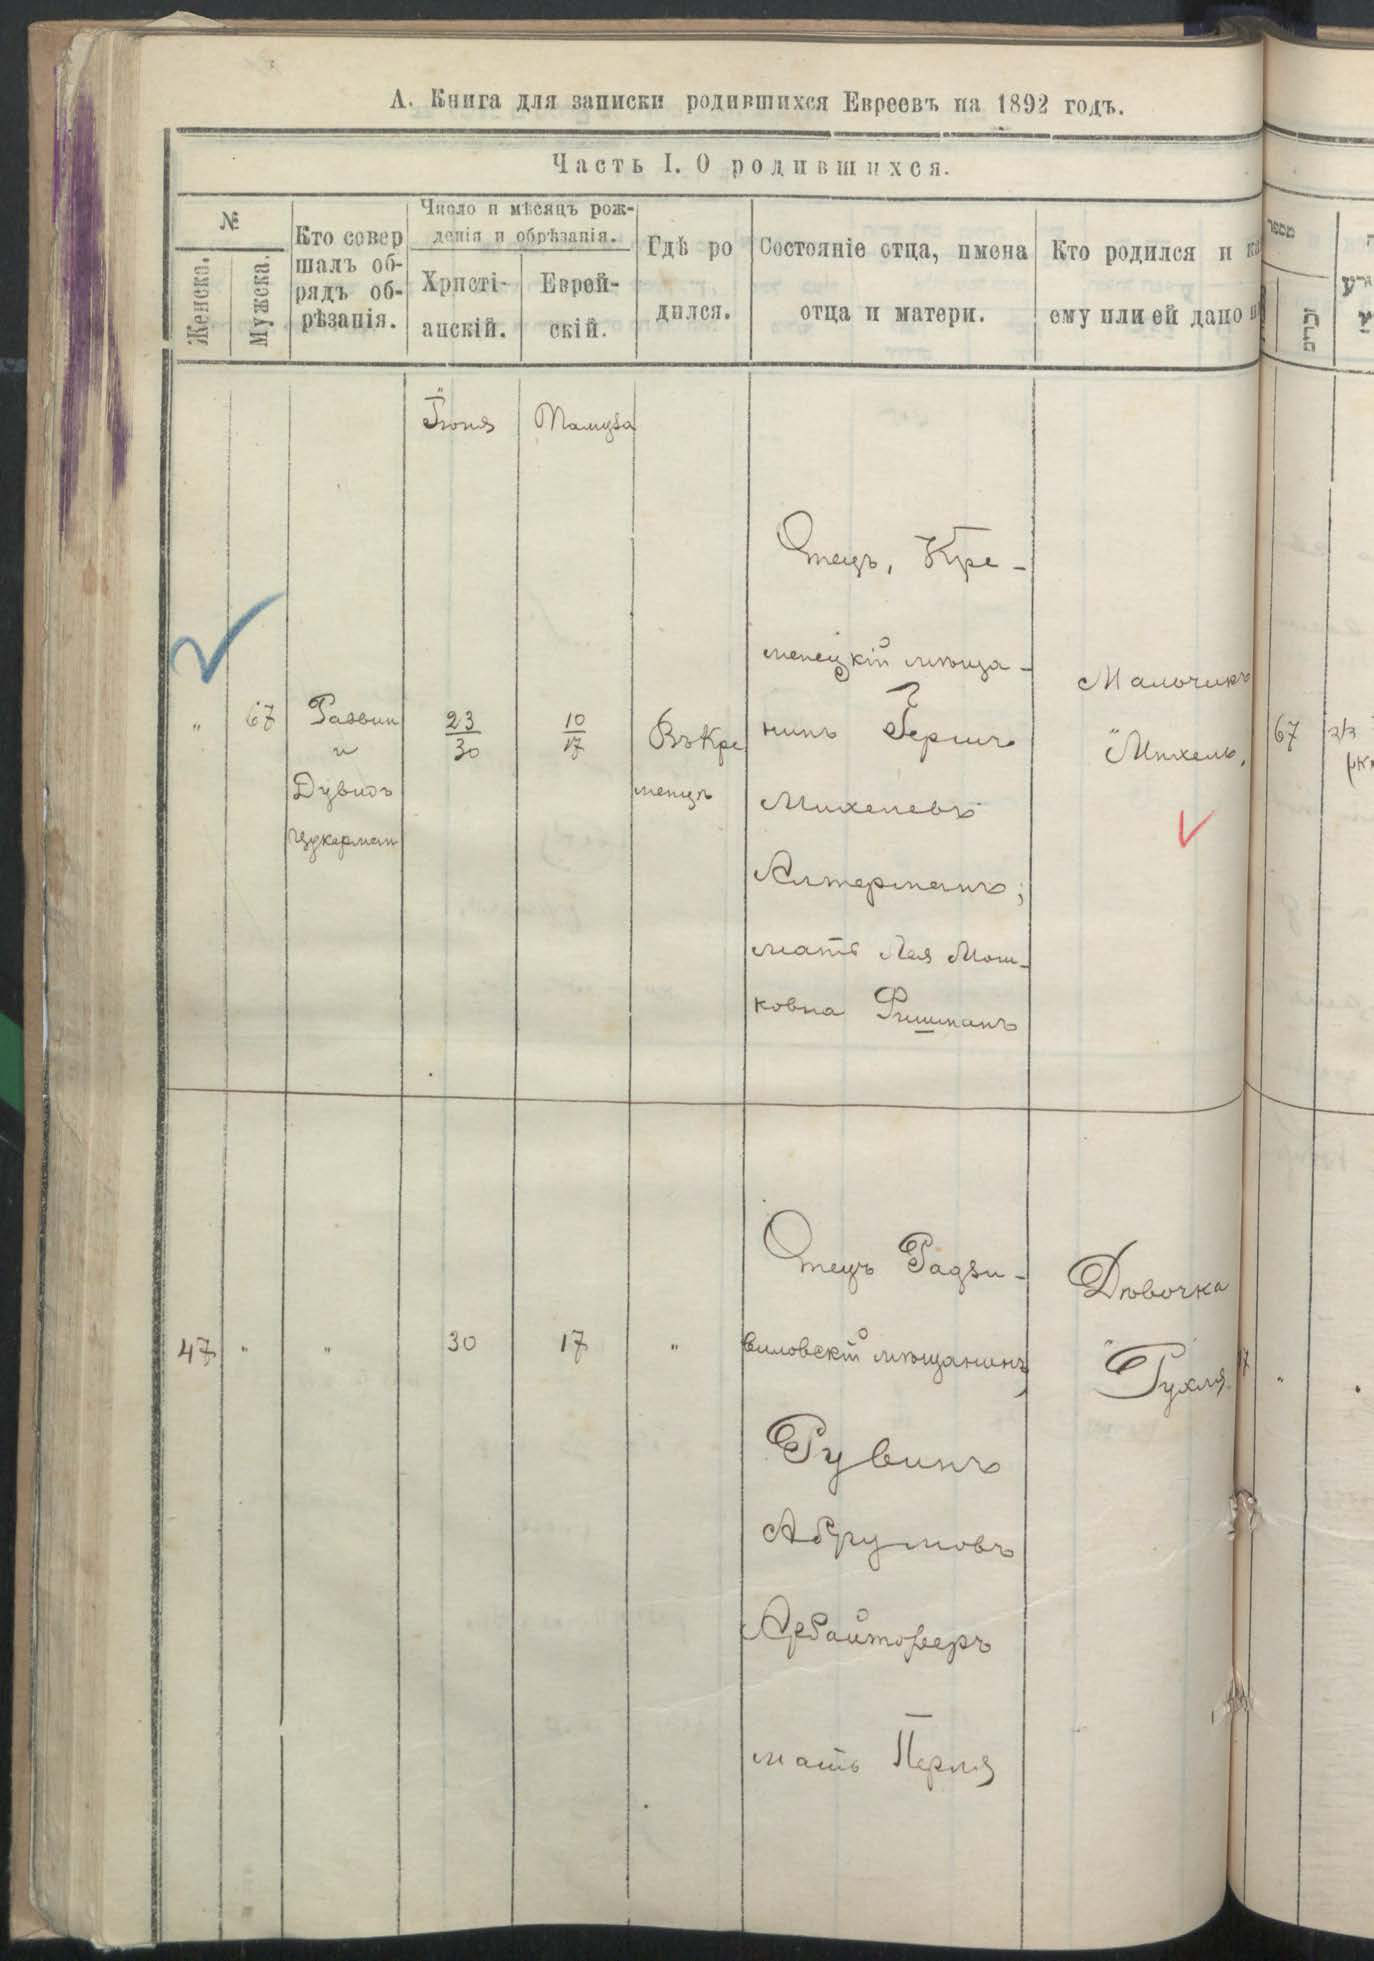 А. Книга для записки родившихся Евреевъ на 1892 годъ.
Часть I. О родившихся.
№
Женска.
Мужска.
Кто совер
шалъ об-
рядъ об-
рѣзанія.
Число и мѣсяцъ рож-
денія и обрѣзанія.
Христі-
анскій.
Еврей-
скій.
Гдѣ ро
дился.
Состояніе отца, имена
отца и матери.
Кто родился и
ему или ей дано
מספר
זכרים
Іюня
Тамуза
„
67
Раввин
и
Дувидъ
Цукерман
23
30
10
17
Въ Кре
менцѣ
Отецъ, Кре-
менецкій мѣща-
нинъ Гершъ
Михелевъ
Алтерманъ;
мать Лея Мош-
ковна Фишманъ
Мальчикъ
Михель,
67
47
„
„
30
17
„
Отецъ Радзи-
виловскій мѣщанинъ,
Рувинъ
Абрумовъ
Арбайтоферъ
мать Перля
Дѣвочка
Рухля
„